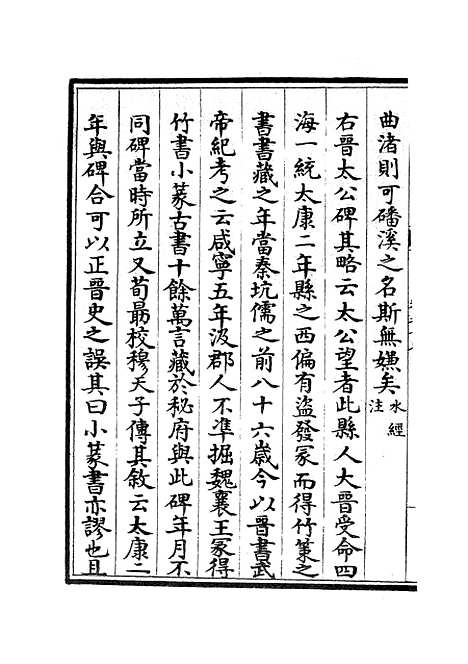 曲渚則可磻溪之名斯無嫌矣水經注
右晉太公碑其略云太公望者此縣人大晉受命四
海一統太康二年縣之西偏有盜發冢而得竹策之
書書藏之年當秦坑儒之前八十六歲今以晉書武
帝紀考之云咸寧五年汲郡人不凖掘魏襄王冢得
竹書小篆古書十餘萬言藏於秘府與此碑年月不
同碑當時所立又荀朂校穆天子傳其敘云太康二
年與碑合可以正晉史之誤其曰小篆書亦謬也且